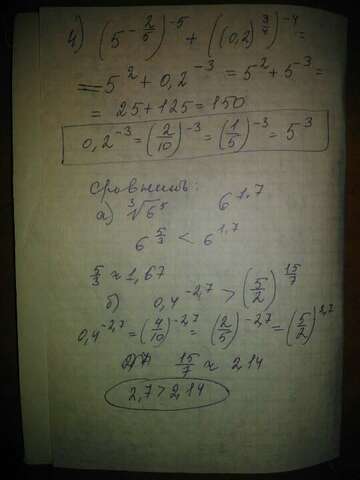 4) (5^{-\frac{2}{5}})^{-5} + ((0,2)^{\frac{3}{7}})^{-7} =
= 5^2 + 0,2^{-3} = 5^2 + 5^{-3} =
= 25 + 125 = 150
0,2^{-3} = (\frac{2}{10})^{-3} = (\frac{1}{5})^{-3} = 5^3
Сравнить:
а) \sqrt[3]{6^5} 6^{1,7}
6^{\frac{5}{3}} < 6^{1,7}
\frac{5}{3} ≈ 1,67
б) 0,4^{-2,7} > (\frac{5}{2})^{\frac{15}{7}}
0,4^{-2,7} = (\frac{4}{10})^{-2,7} = (\frac{2}{5})^{-2,7} = (\frac{5}{2})^{2,7}
\frac{15}{7} ≈ 2,14
2,7 > 2,14